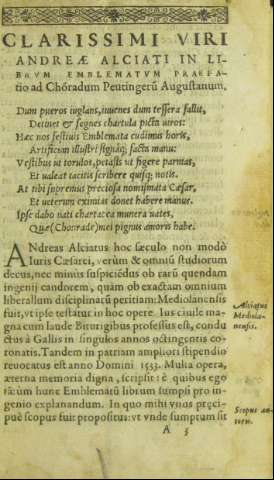 CLARISSIMI VIRI
ANDREÆ ALCIATI IN LI-
BRVM EMBLEMATVM PRAEFA-
tio ad Chōradum Peutingerū Augustanum.
Dum pueros iuglans, iuuenes dum tessera fallit,
Detinet & segnes chartula picta viros:
Hæc nos festiuis Emblemata cudimus horis,
Artificum illustri signáq; facta manu:
Vestibus vt torulos, petasis vt figere parmas,
Et valeat tacitis scribere quisq; notis.
At tibi supremus preciosa nomismata Cæsar,
Et veterum eximias donet habere manus.
Ipse dabo vati chartacea munera vates,
Quæ (Chonrade) mei pignus amoris habe.
ANdreas Alciatus hoc sæculo non modò
Iuris Cæsarei, verùm & omniū studiorum
decus, nec minus suspiciēdus ob rarū quendam
ingenij candorem, quàm ob exactam omnium
liberalium disciplinarū peritiam: Mediolanensis
fuit, vt ipse testatur in hoc opere. Ius ciuile ma-
gna cum laude Biturigibus professus est, condu
ctus à Gallis in singulos annos octingentis co-
ronatis. Tandem in patriam ampliori stipendio
reuocatus est anno Domini 1533. Multa opera,
æterna memoria digna, scripsit: è quibus ego
tātùm hunc Emblematū librum sumpsi pro in-
genio explanandum. In quo mihi vnus præci-
puè scopus fuit propositus: vt vnde sumptum sit
A 5
Alciatus
Mediola-
nensis.
Scopus au-
toris.